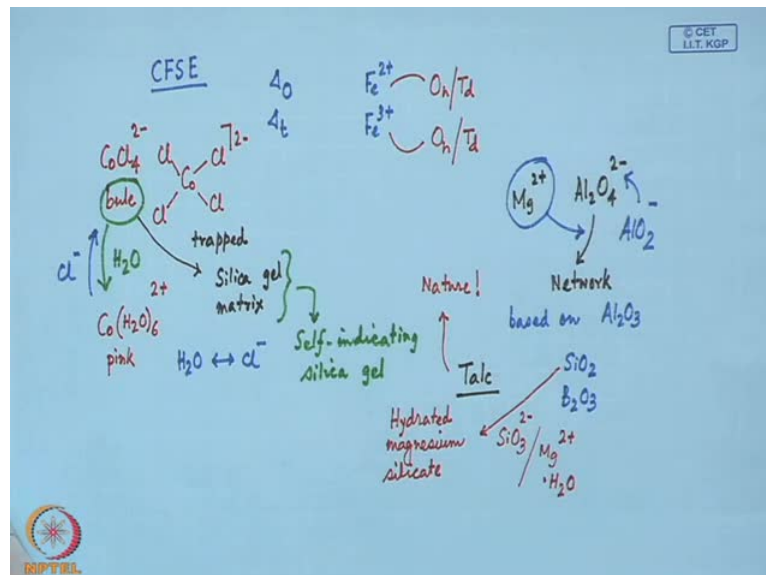 © CET
I.I.T. KGP
CFSE
Δo
Δt
Fe2+ Oh/Td
Fe3+ Oh/Td
CoCl4 2-
bule
Cl Cl ]2-
Co
Cl Cl
trapped
Silica gel
matrix
H2O
Cl-
Co(H2O)6 2+
pink
H2O ↔ Cl-
Self-indicating
silica gel
Mg2+ Al2O4 2-
AlO2 -
Network
based on Al2O3
SiO2
B2O3
Nature!
Talc
Hydrated
magnesium
silicate
SiO3 2- / Mg2+
·H2O
NPTEL